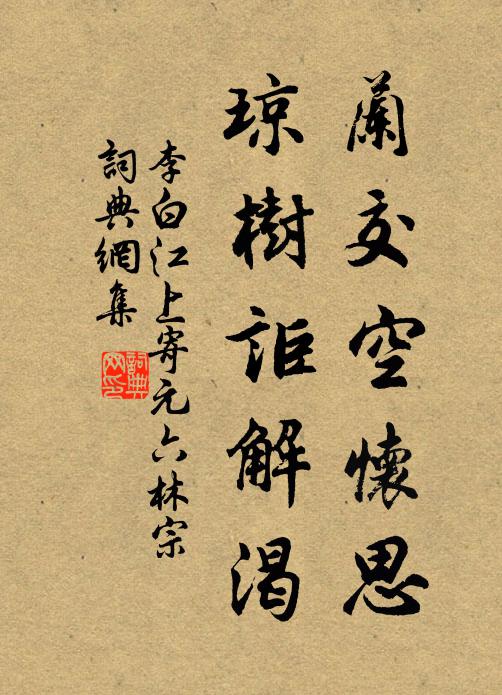 蘭交空懷思
瓊樹詎解渴
李白江上寄元六林宗
詞典網集
詞典網印